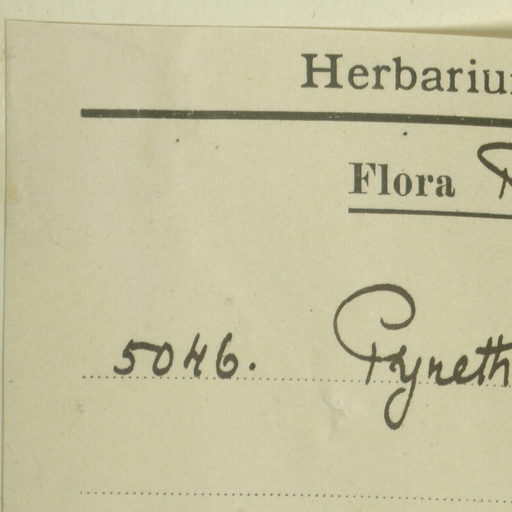 Herbariu
Flora
5046. Pyreth